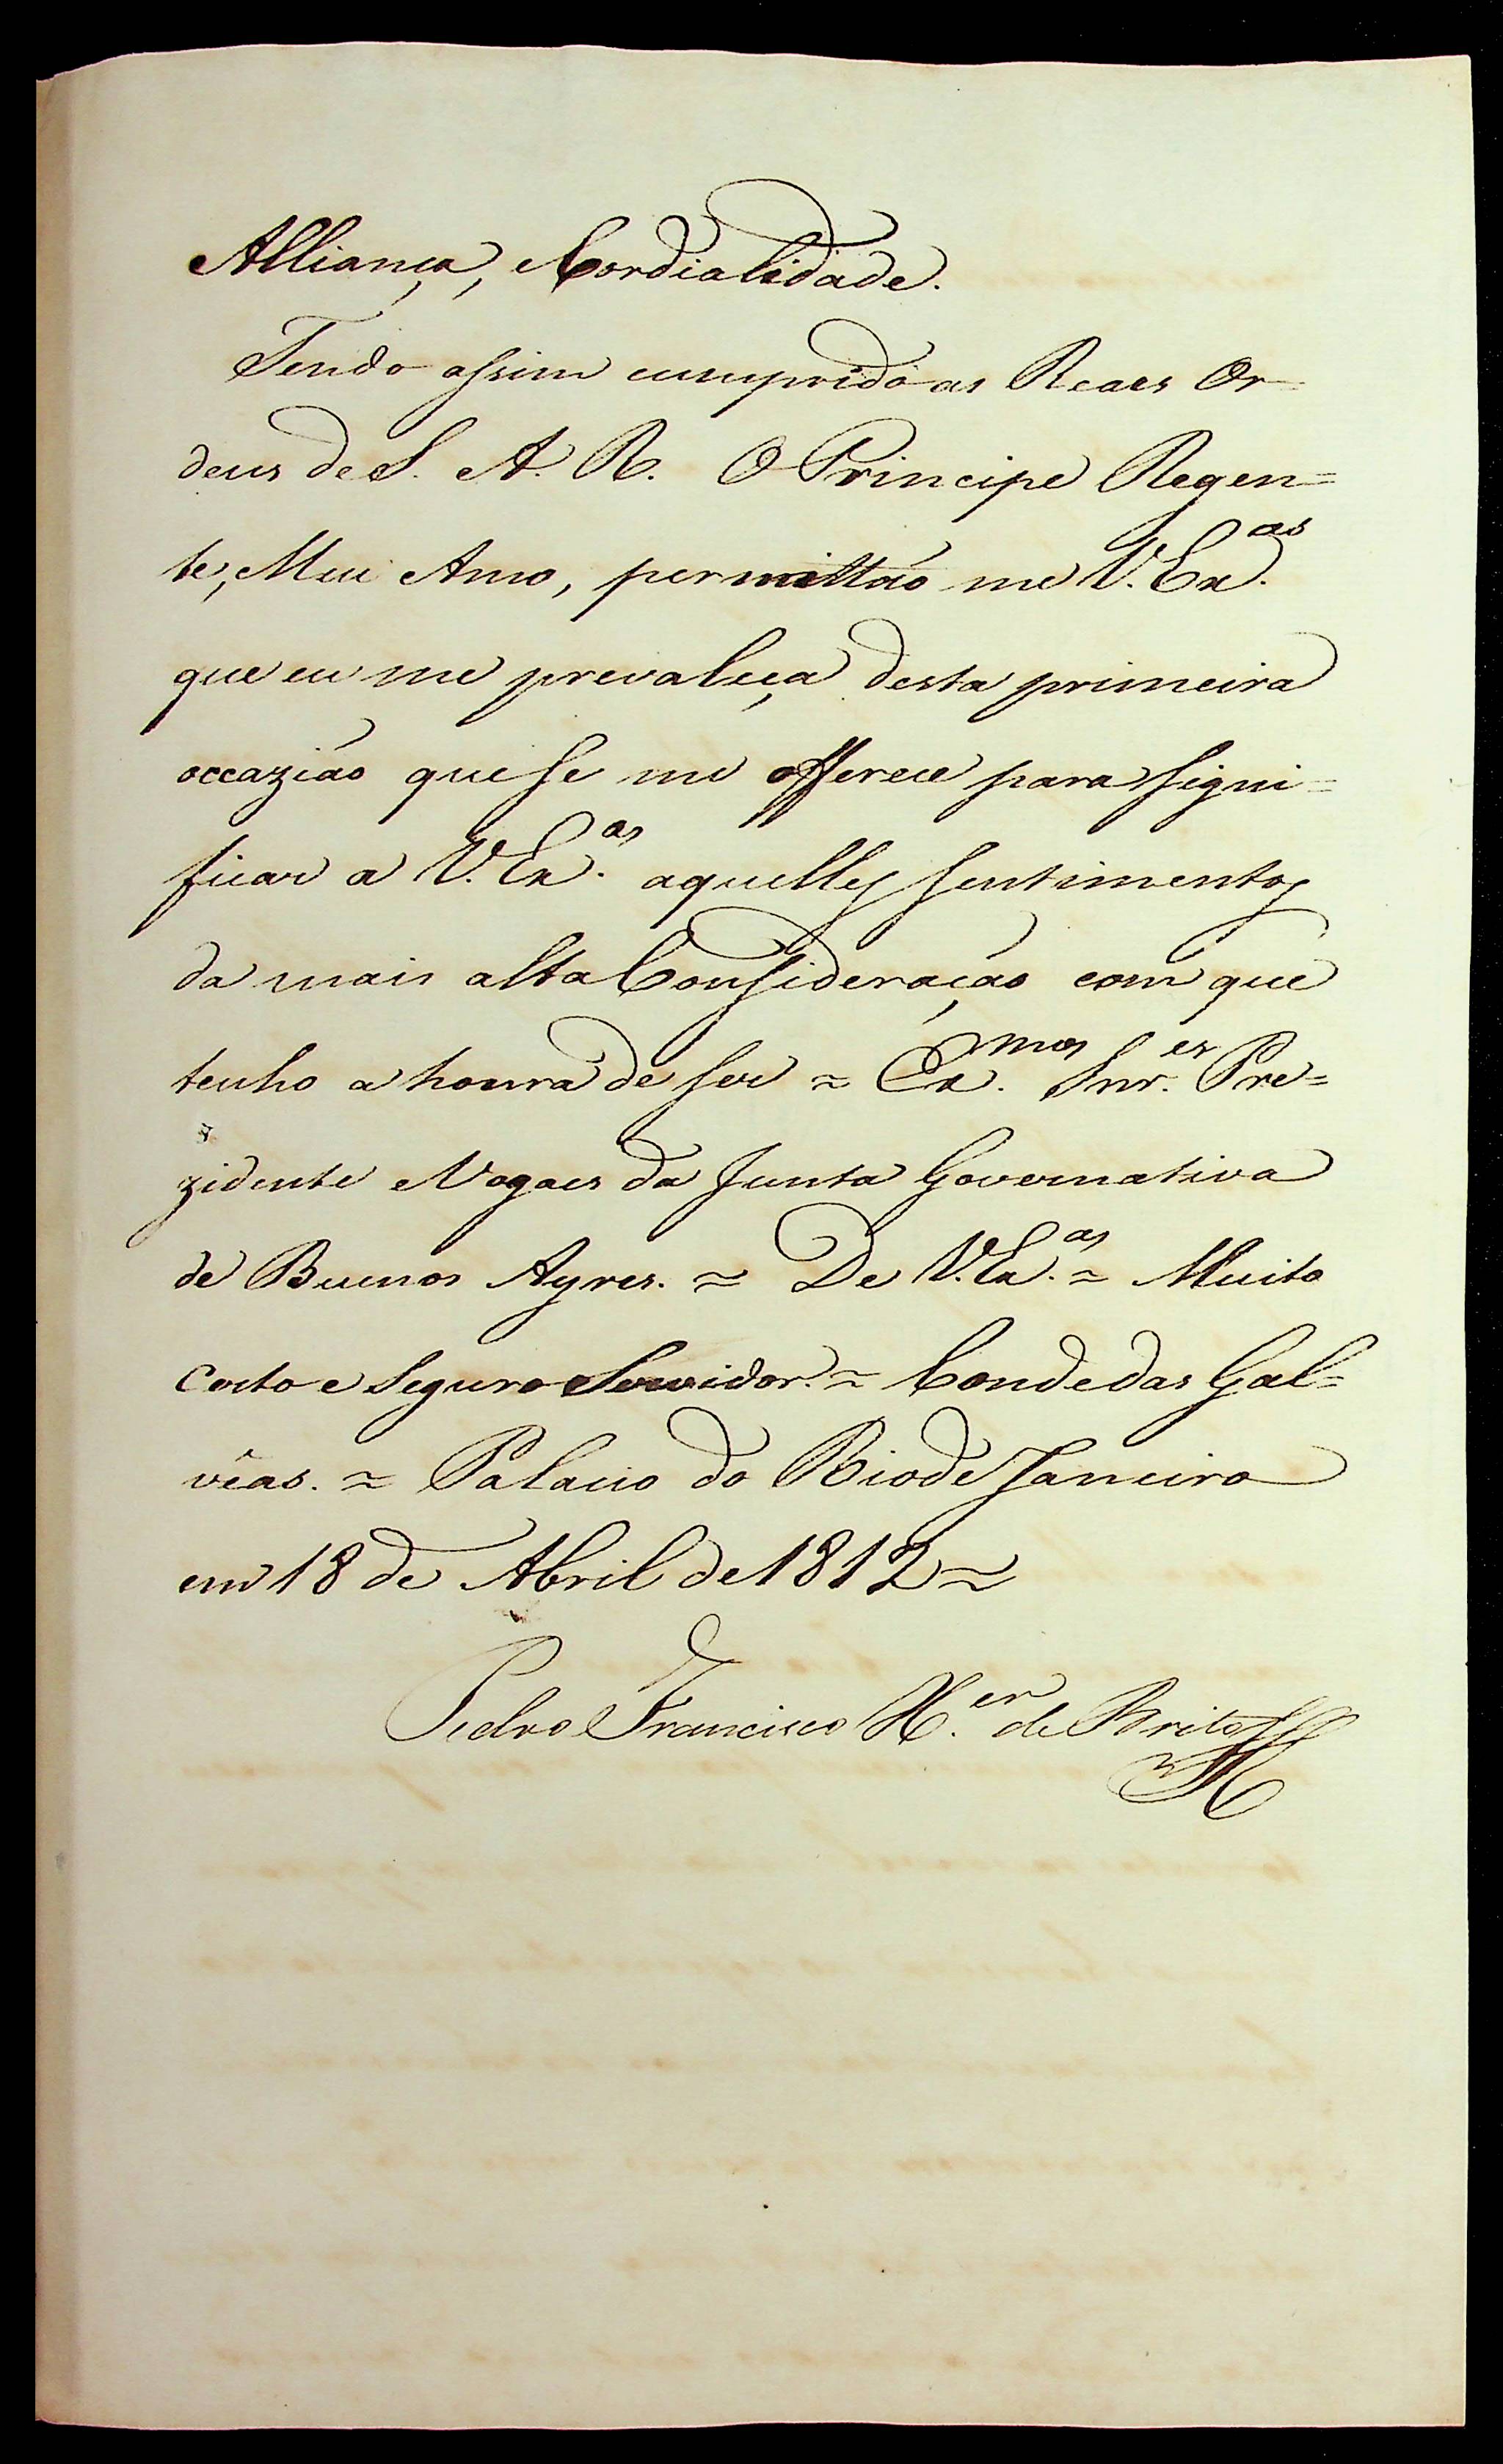 Alliança, e Cordialidade.
Tendo assim cumprido as Reaes Or-
dens de S. A. R. O Principe Regen=
te, Meu Amo, permittaõ me V. Ex.as
que eu me prevaleça desta primeira
occaziaõ que se me offerece para signi=
ficar a V. Ex.as aquelles sentimentos
da mais alta Consideraçaõ com que
tenho a honra de ser ≈ Ex.mos Snr.es Pre=
zidente e Vogaes da Junta Governativa
de Buenos Ayres. ≈ De V. Ex.as ≈ Muito
Certo e Seguro Servidor. ≈ Conde das Gal=
vêas. ≈ Palacio do Rio de Janeiro
em 18 de Abril de 1812 ≈
Pedro Francisco X.er de Brito